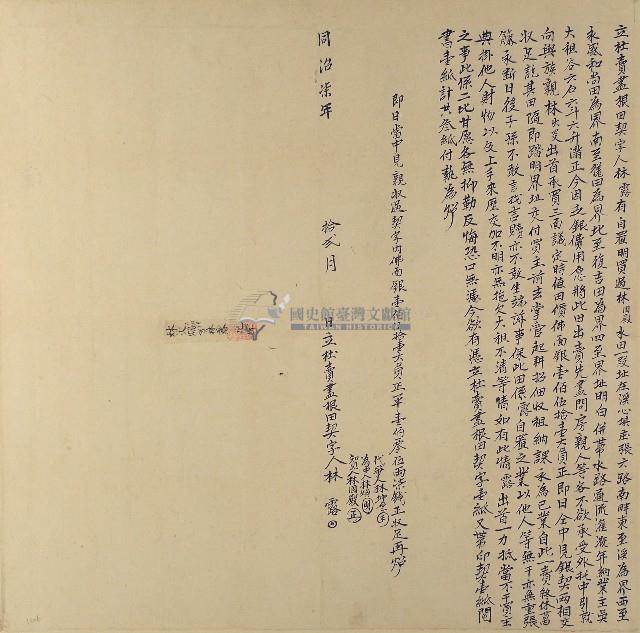 立杜賣盡根田契字人林露有自置明買過林國殿水田一段址在溪心埧庄張六路南畔東至溪為界西至
永盛和尚田為界南至龍田為界北至復吉田為界四至界址明白併帶水路通流灌溉年納業主吳
大租谷六石六斗六升滿正今因乏銀費用愿將此田出賣先盡問房親人等各不欲承受外托中引就
向與族親林出首承買三面議定時值田價佛面銀壹佰伍拾大員正即日仝中見銀契兩相交
收足訖其田隨即踏明界址交付買主前去掌管起耕招佃收租納課永為己業自此一賣終休葛
籐永斷日後子孫不敢言找言贖亦不敢生端訴事保此田係露自置之業以他人等無干亦無重張
典掛他人財物以及上手來歷交加不明亦無拖欠大租不清等情如有此情露出首一力抵當不干買主
之事此係二比甘愿各無抑勒反悔恐口無憑今欲有憑立杜賣盡根田契字壹紙又帶印契壹紙鬮
書壹紙計共叁紙付執為炤
即日當中見親收過契字內佛面銀壹佰伍拾大員正足再炤
代筆人林
為中人林
知見人林國殿
同治柒年 拾弍月 日立杜賣盡根田契字人林 露
國史館臺灣文獻館
TAIWAN HISTORICA